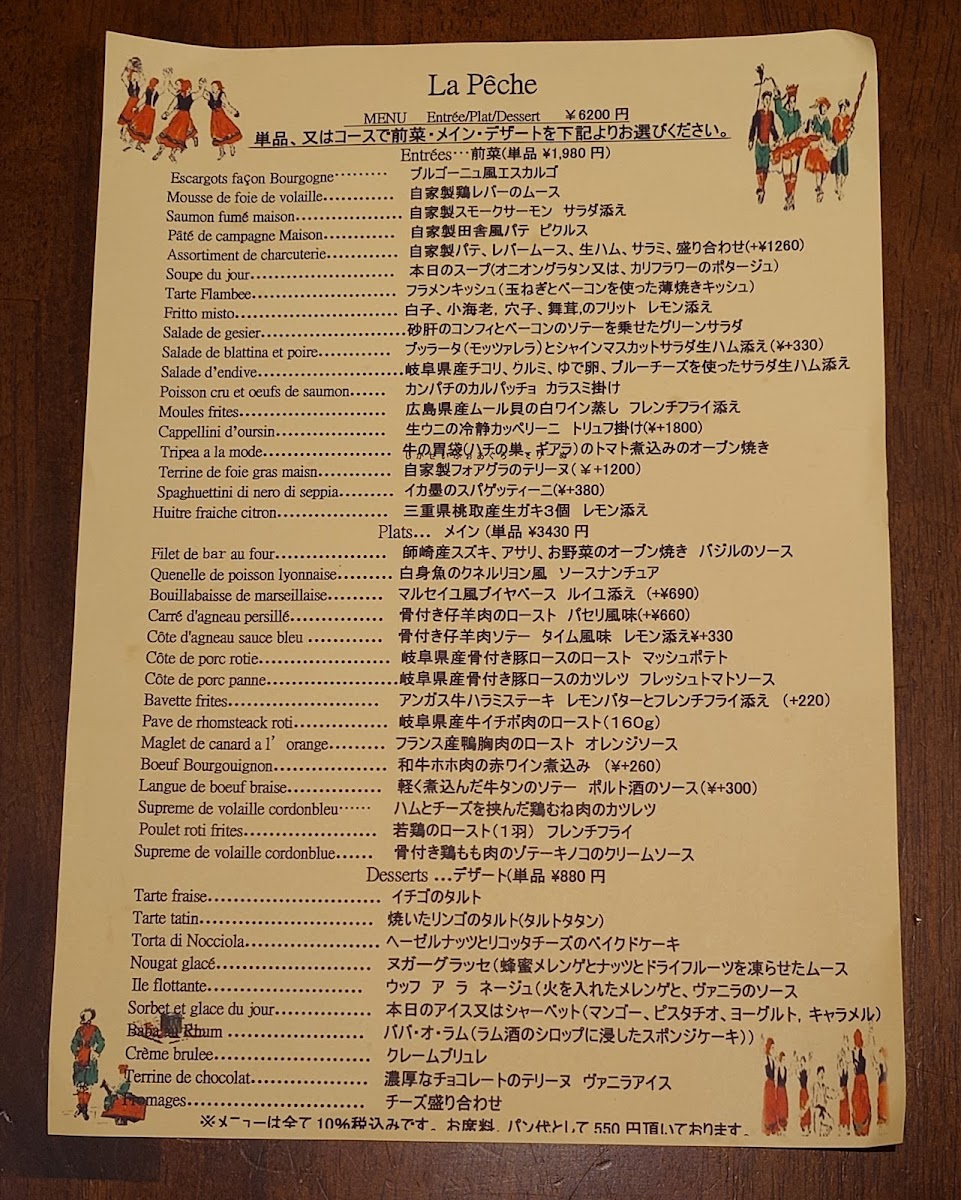 La Pêche
MENU Entrée/Plat/Dessert ¥6200円
単品、又はコースで前菜・メイン・デザートを下記よりお選びください。
Entrées…前菜(単品 ¥1,980 円)
Escargots façon Bourgogne……… ブルゴーニュ風エスカルゴ
Mousse de foie de volaille………… 自家製鶏レバーのムース
Saumon fumé maison……………… 自家製スモークサーモン サラダ添え
Pâté de campagne Maison………… 自家製田舎風パテ ピクルス
Assortiment de charcuterie………… 自家製パテ、レバームース、生ハム、サラミ、盛り合わせ(+¥1260)
Soupe du jour…………………… 本日のスープ(オニオングラタン又は、カリフラワーのポタージュ)
Tarte Flambee…………………… フラメンキッシュ(玉ねぎとベーコンを使った薄焼きキッシュ)
Fritto misto……………………… 白子、小海老, 穴子、舞茸,のフリット レモン添え
Salade de gesier………………… 砂肝のコンフィとベーコンのソテーを乗せたグリーンサラダ
Salade de blattina et poire………… ブッラータ(モッツァレラ)とシャインマスカットサラダ生ハム添え(¥+330)
Salade d'endive…………………… 岐阜県産チコリ、クルミ、ゆで卵、ブルーチーズを使ったサラダ生ハム添え
Poisson cru et oeufs de saumon…… カンパチのカルパッチョ カラスミ掛け
Moules frites……………………… 広島県産ムール貝の白ワイン蒸し フレンチフライ添え
Cappellini d'oursin………………… 生ウニの冷静カッペリーニ トリュフ掛け(¥+1800)
Tripea a la mode………………… 牛の胃袋(ハチの巣、ギアラ)のトマト煮込みのオーブン焼き
Terrine de foie gras maisn………… 自家製フォアグラのテリーヌ(¥+1200)
Spaghuettini di nero di seppia……… イカ墨のスパゲッティーニ(¥+380)
Huitre fraiche citron……………… 三重県桃取産生ガキ3個 レモン添え
Plats… メイン (単品 ¥3430 円
Filet de bar au four……………… 師崎産スズキ、アサリ、お野菜のオーブン焼き バジルのソース
Quenelle de poisson lyonnaise……… 白身魚のクネルリヨン風 ソースナンチュア
Bouillabaisse de marseillaise……… マルセイユ風ブイヤベース ルイユ添え (+¥690)
Carré d'agneau persillé………… 骨付き仔羊肉のロースト パセリ風味(+¥660)
Côte d'agneau sauce bleu ………… 骨付き仔羊肉ソテー タイム風味 レモン添え¥+330
Côte de porc rotie………………… 岐阜県産骨付き豚ロースのロースト マッシュポテト
Côte de porc panne……………… 岐阜県産骨付き豚ロースのカツレツ フレッシュトマトソース
Bavette frites……………………… アンガス牛ハラミステーキ レモンバターとフレンチフライ添え (+220)
Pave de rhomsteack roti………… 岐阜県産牛イチボ肉のロースト(160g)
Maglet de canard a l' orange……… フランス産鴨胸肉のロースト オレンジソース
Boeuf Bourgouignon……………… 和牛ホホ肉の赤ワイン煮込み (¥+260)
Langue de boeuf braise…………… 軽く煮込んだ牛タンのソテー ポルト酒のソース(¥+300)
Supreme de volaille cordonbleu…… ハムとチーズを挟んだ鶏むね肉のカツレツ
Poulet roti frites………………… 若鶏のロースト(1羽) フレンチフライ
Supreme de volaille cordonblue…… 骨付き鶏もも肉のソテーキノコのクリームソース
Desserts …デザート(単品 ¥880 円
Tarte fraise……………………… イチゴのタルト
Tarte tatin……………………… 焼いたリンゴのタルト(タルトタタン)
Torta di Nocciola………………… ヘーゼルナッツとリコッタチーズのベイクドケーキ
Nougat glacé…………………… ヌガーグラッセ(蜂蜜メレンゲとナッツとドライフルーツを凍らせたムース
Ile flottante……………………… ウッフ ア ラ ネージュ(火を入れたメレンゲと、ヴァニラのソース
Sorbet et glace du jour…………… 本日のアイス又はシャーベット(マンゴー、ピスタチオ、ヨーグルト, キャラメル)
Baba au Rhum ………………… ババ・オ・ラム(ラム酒のシロップに浸したスポンジケーキ))
Crème brulee…………………… クレームブリュレ
Terrine de chocolat……………… 濃厚なチョコレートのテリーヌ ヴァニラアイス
Fromages………………………… チーズ盛り合わせ
※メニューは全て10%税込みです。お席料、パン代として 550 円頂いております。